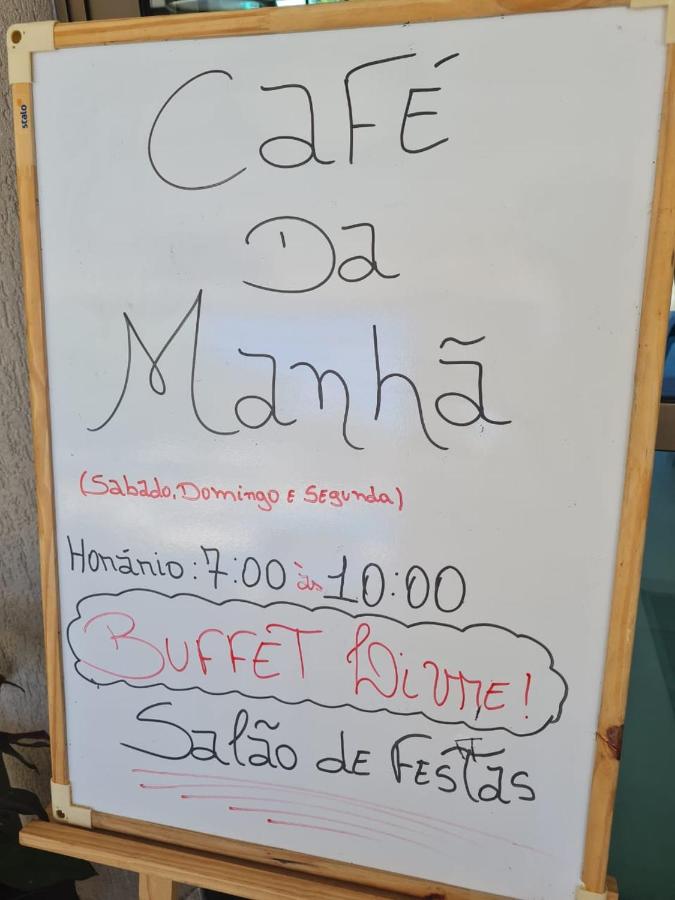 stalo
Café
Da
Manhã
(Sabado, Domingo e Segunda)
Horário: 7:00 às 10:00
BUFFET LIVRE!
Salão de Festas